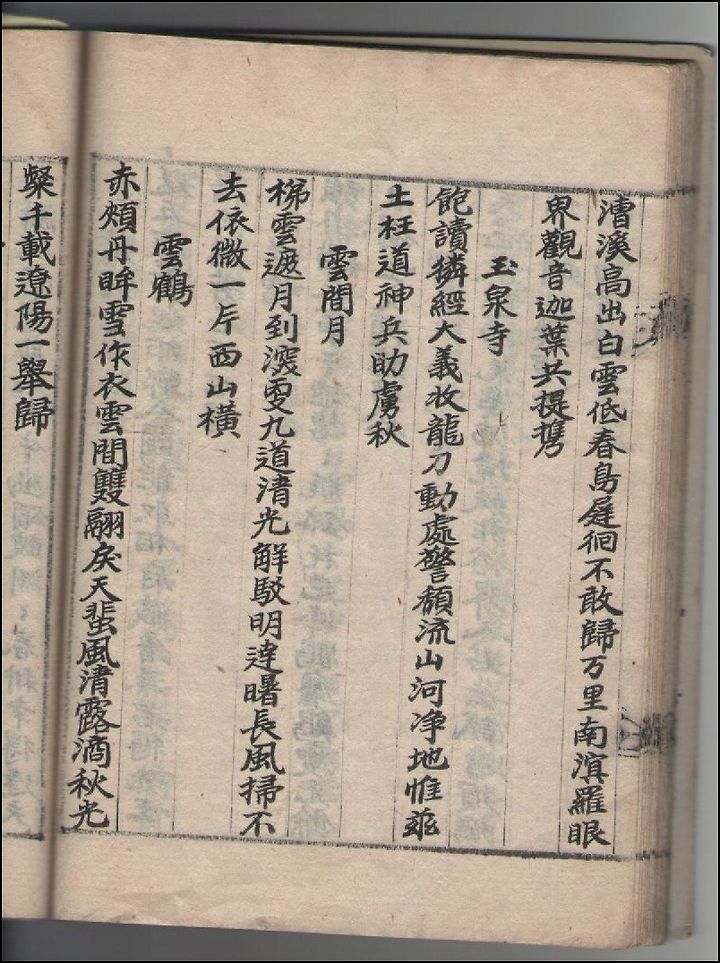 漕溪高出白雲低春鳥遲徊不敢歸万里南溟羅眼
界觀音迦葉共提携
玉泉寺
飽讀獜經大義收龍刀動處警顏流山河淨地惟玆
土枉道神兵助虜秋
雲間月
梯雲遮月到深更九道淸光解駁明達曙長風掃不
去依微一片西山橫
雲鶴
赤頰丹眸雪作衣雲間雙翮戾天蜚風淸露滴秋光
粲千載遼陽一擧歸